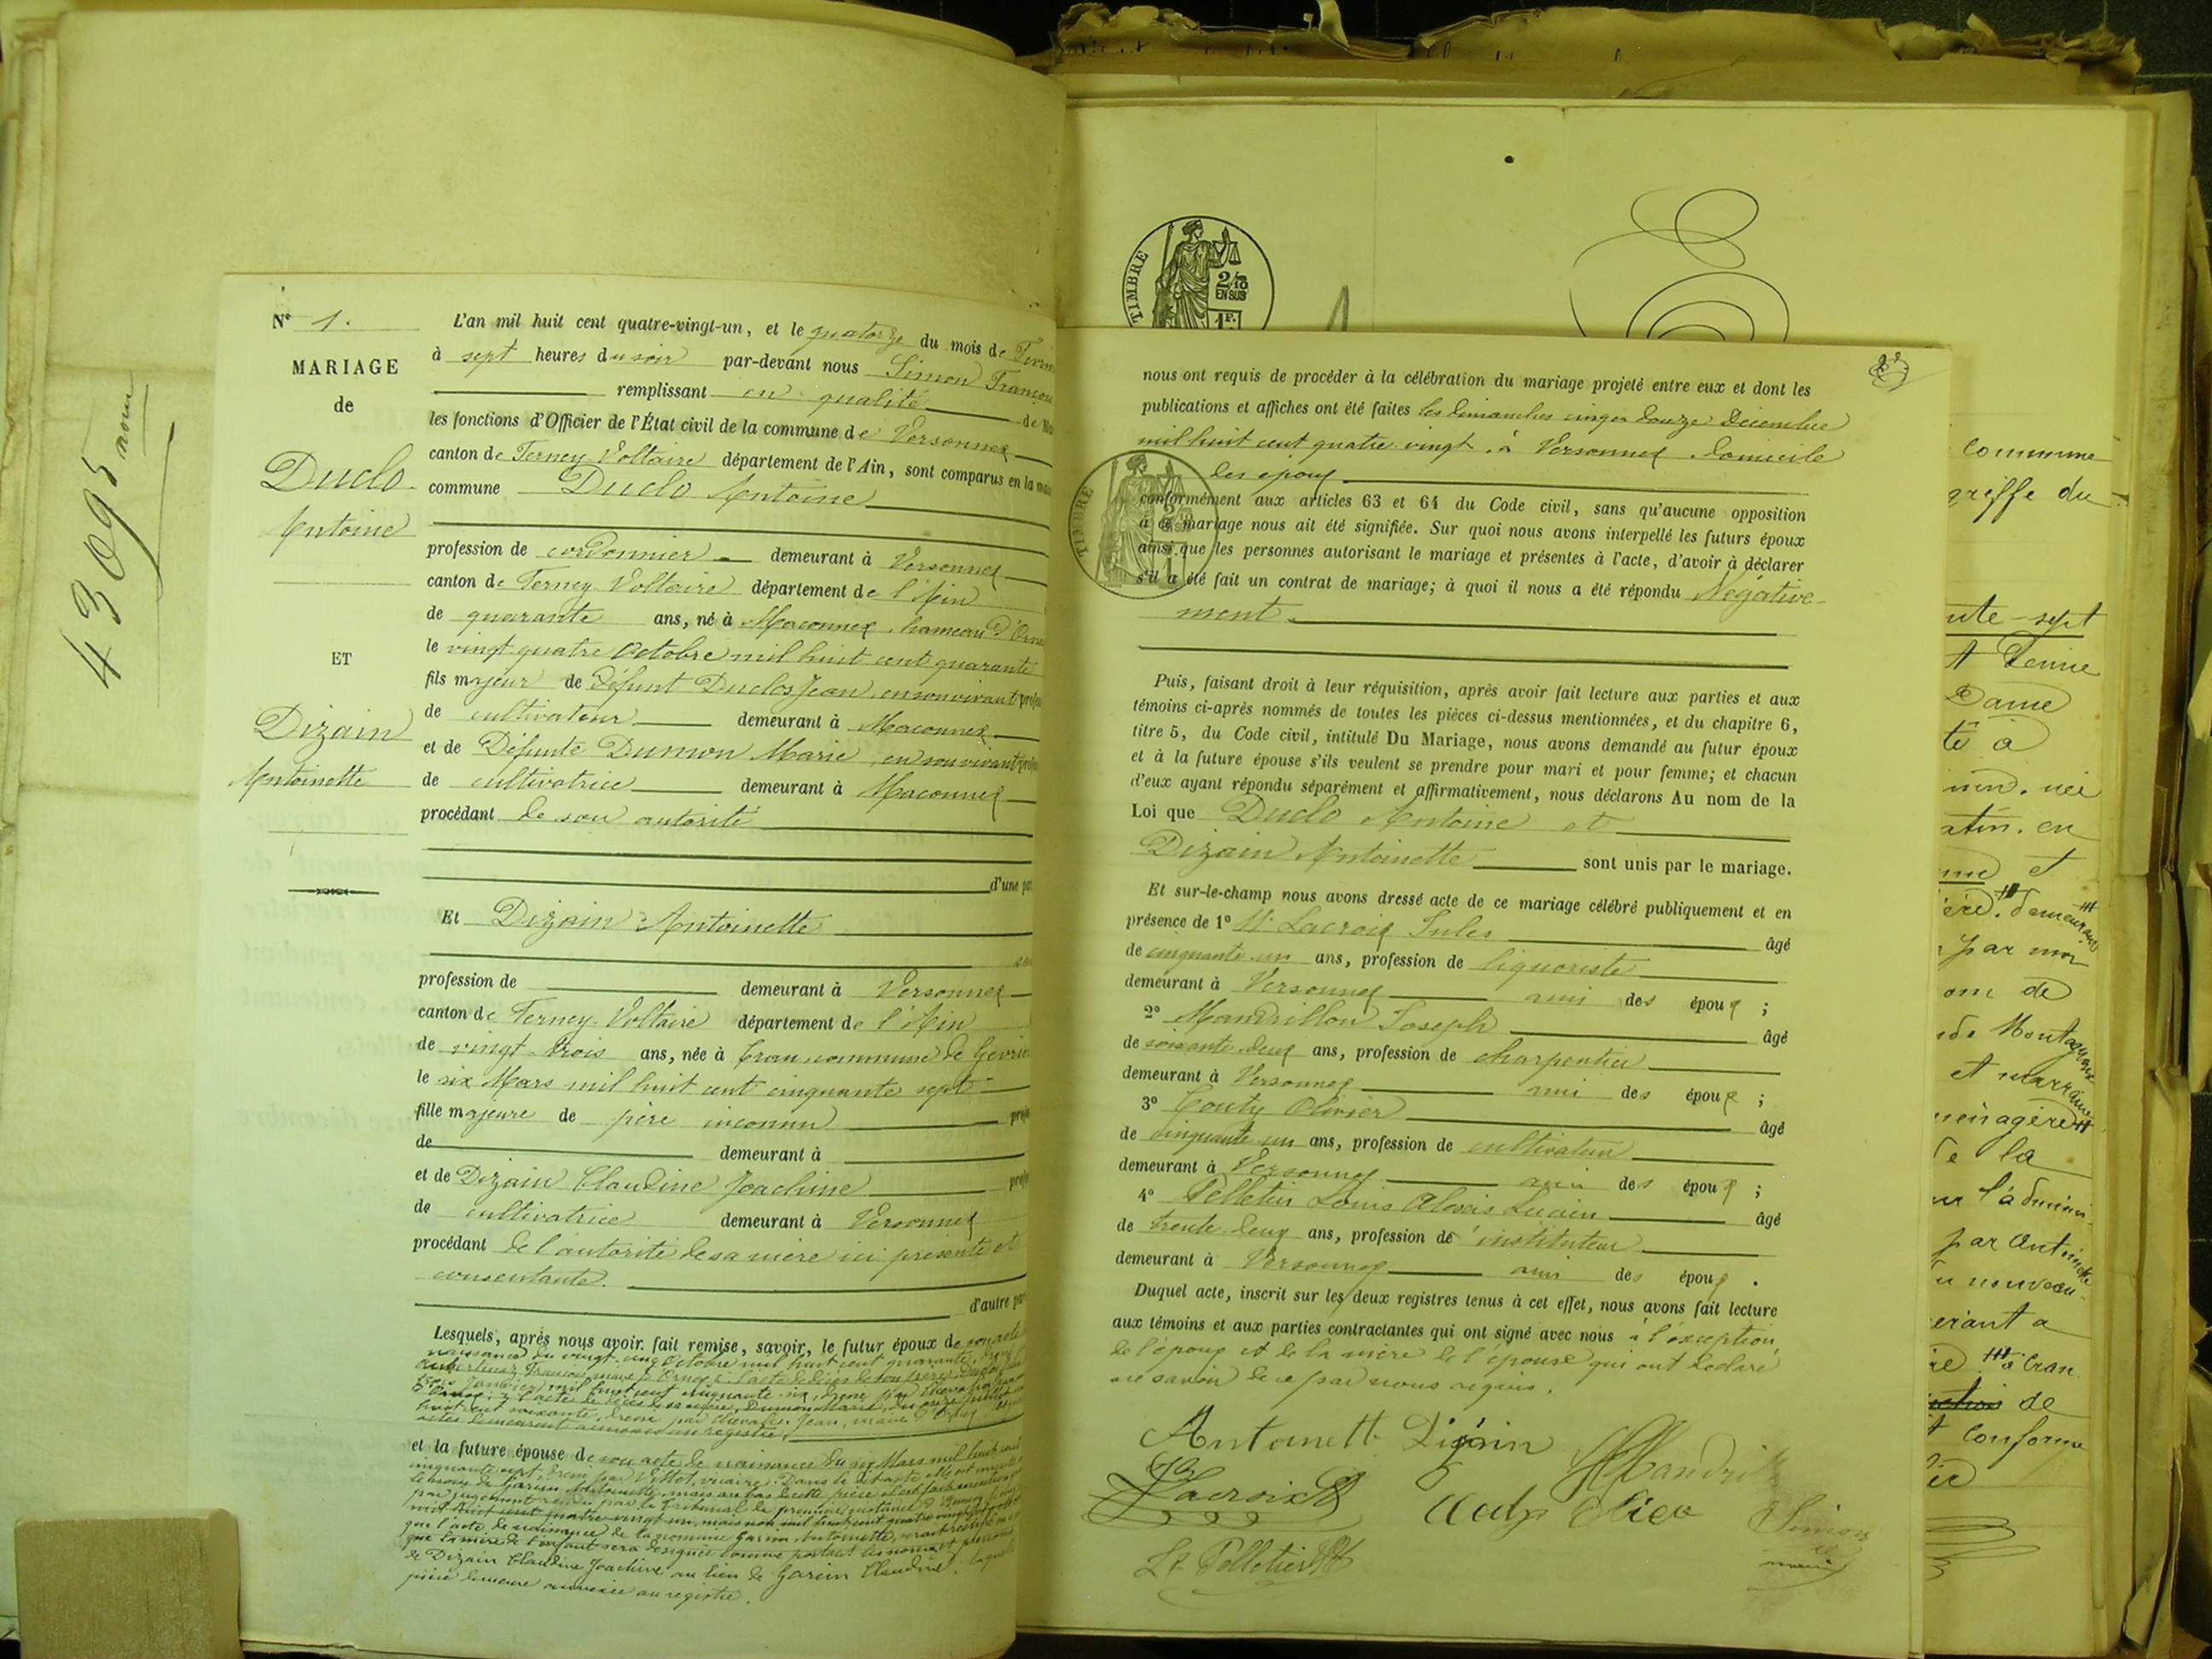 43095 
N° 1.
MARIAGE
de
Duclo
Antoine
ET
Dizain
Antoinette
L'an mil huit cent quatre-vingt-un, et le quatorze du mois de
à sept heures du soir par-devant nous Simon François
remplissant en qualité de
les fonctions d'Officier de l'État civil de la commune de Versonnex
canton de Ferney Voltaire département de l'Ain, sont comparus en la
commune Duclo Antoine
profession de cordonnier demeurant à Versonnex
canton de Ferney Voltaire département de l'Ain
de quarante ans, né à Maconnex, hameau d'
le vingt quatre Octobre mil huit cent quarante
fils majeur de Défunt Duclos Jean en son vivant
de cultivateur demeurant à Maconnex
et de Défunte Dumon Marie, en son vivant
de cultivatrice demeurant à Maconnex
procédant de son autorité
d'une
Et Dizain Antoinette
profession de demeurant à Versonnex
canton de Ferney-Voltaire département de l'Ain
de vingt trois ans, née à Cran commune de
le six Mars mil huit cent cinquante sept
fille majeure de père inconnu
de demeurant à
et de Dizain Claudine Joachine
de cultivatrice demeurant à Versonnex
procédant de l'autorité de sa mère ici présente et
consentante.
d'autre
Lesquels, après nous avoir fait remise, savoir, le futur époux de son acte
naissance du vingt cinq Octobre mil huit cent quarante,
François, maire d'Ornex; l'acte de décès de son père
mil huit cent cinquante-six,
l'acte de décès de sa mère, Dumon Marie,
huit cent soixante, par Chevalier Jean, maire d'
actes demeurent annexés au registre.
et la future épouse de son acte de naissance du six Mars mil huit cent
cinquante sept, vicaire. Dans le dit acte elle est
le nom de Garin Antoinette, mais au bas de cette pièce il est fait mention
par jugement rendu par le Tribunal de première instance d'Annecy
mil huit cent quatre vingt un, mais non mil huit cent quatre vingt
que l'acte de naissance de la nommée Garin Antoinette,
que la mère de l'enfant sera désignée comme portant les noms et prénoms
de Dizain Claudine Joachine au lieu de Garin Claudine,
pièce demeure annexée au registre.
TIMBRE
2/10
EN SUS
1F.
nous ont requis de procéder à la célébration du mariage projeté entre eux et dont les
publications et affiches ont été faites les dimanches cinq et douze Décembre
mil huit cent quatre vingt, à Versonnex, domicile
des époux
conformément aux articles 63 et 64 du Code civil, sans qu'aucune opposition
à ce mariage nous ait été signifiée. Sur quoi nous avons interpellé les futurs époux
ainsi que les personnes autorisant le mariage et présentes à l'acte, d'avoir à déclarer
s'il a été fait un contrat de mariage; à quoi il nous a été répondu Négative-
ment.
TIMBRE
Puis, faisant droit à leur réquisition, après avoir fait lecture aux parties et aux
témoins ci-après nommés de toutes les pièces ci-dessus mentionnées, et du chapitre 6,
titre 5, du Code civil, intitulé Du Mariage, nous avons demandé au futur époux
et à la future épouse s'ils veulent se prendre pour mari et pour femme; et chacun
d'eux ayant répondu séparément et affirmativement, nous déclarons Au nom de la
Loi que Duclo Antoine et
Dizain Antoinette sont unis par le mariage.
Et sur-le-champ nous avons dressé acte de ce mariage célébré publiquement et en
présence de 1° Mr Lacroix Jules âgé
de cinquante un ans, profession de liquoriste
demeurant à Versonnex ami des époux ;
2° Mandrillon Joseph âgé
de soixante deux ans, profession de charpentier
demeurant à Versonnex ami des époux ;
3° Couty Olivier âgé
de cinquante un ans, profession de cultivateur
demeurant à Versonnex ami des époux ;
4° Pelletier Louis Alexis Lucien âgé
de trente deux ans, profession de instituteur
demeurant à Versonnex ami des époux .
Duquel acte, inscrit sur les deux registres tenus à cet effet, nous avons fait lecture
aux témoins et aux parties contractantes qui ont signé avec nous à l'exception
de l'époux et de la mère de l'épouse qui ont déclaré
ne savoir de ce par nous requis.
Antoinette Dizain
Lacroix
Lt Pelletier
Simon
maire
commune
greffe du
-sept
Dame
té à
en
et
demeurant
par moi
de
et marraine
ménagère
de la
par Antoinette
du nouveau
à Cran
de
conforme